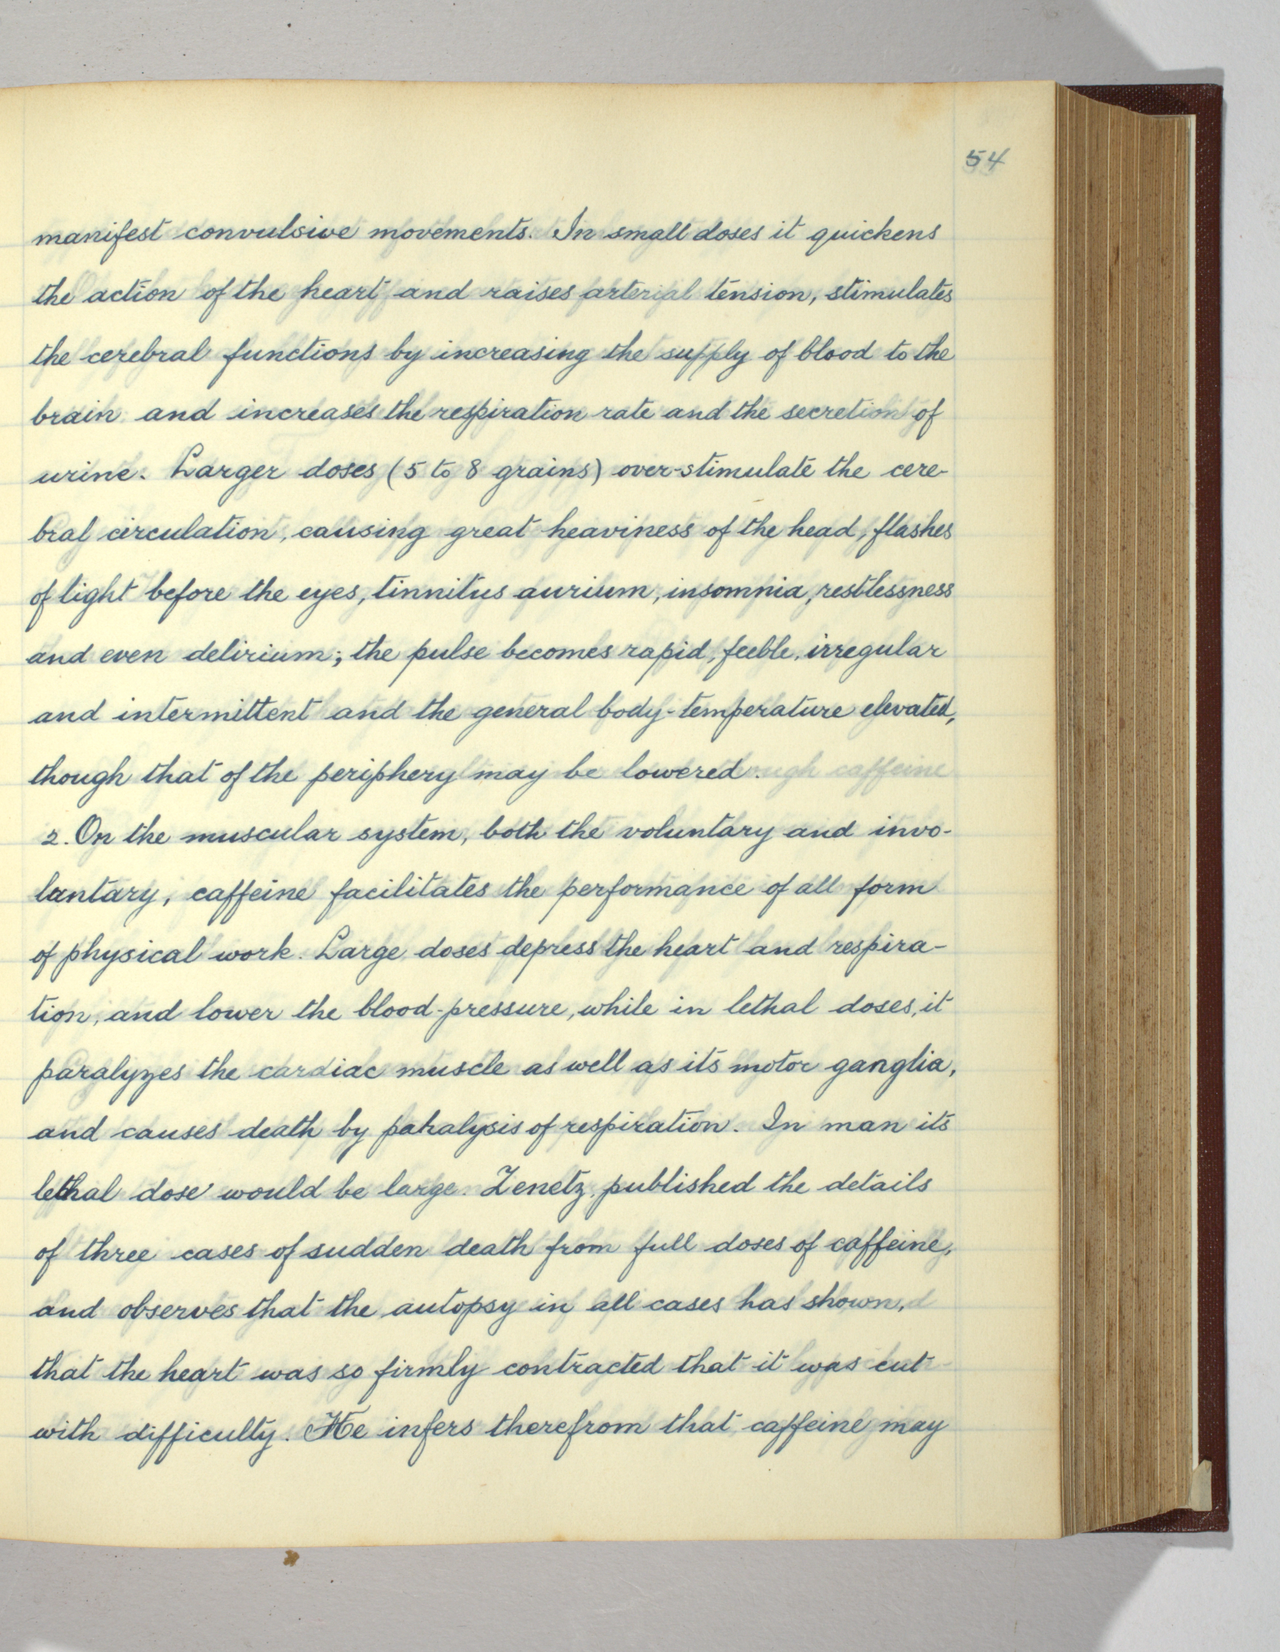 54
manifest convulsive movements. In small doses it quickens
the action of the heart and raises arterial tension, stimulates
the cerebral functions by increasing the supply of blood to the
brain and increases the respiration rate and the secretion of
urine. Larger doses (5 to 8 grains) over-stimulate the cere-
bral circulation, causing great heaviness of the head, flashes
of light before the eyes, tinnitus aurium, insomnia, restlessness
and even delirium; the pulse becomes rapid, feeble, irregular
and intermittent and the general body-temperature elevated,
though that of the periphery may be lowered.
2. On the muscular system, both the voluntary and invo-
luntary, caffeine facilitates the performance of all form
of physical work. Large doses depress the heart and respira-
tion, and lower the blood-pressure, while in lethal doses, it
paralyzes the cardiac muscle as well as its motor ganglia,
and causes death by paralysis of respiration. In man its
lethal dose would be large. Zenetz, published the details
of three cases of sudden death from full doses of caffeine,
and observes that the autopsy in all cases has shown,
that the heart was so firmly contracted that it was cut
with difficulty. He infers therefrom that caffeine may